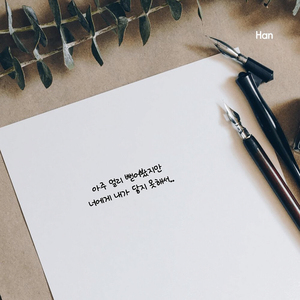 Han
아주 멀리 뻗어봤지만
너에게 내가 닿지 못해서..